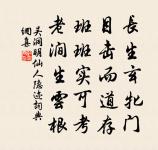 長生玄牝門
目击而道存
班班实可考
老澗生雲根
吴澗明仙人隐迹詞典
網喜